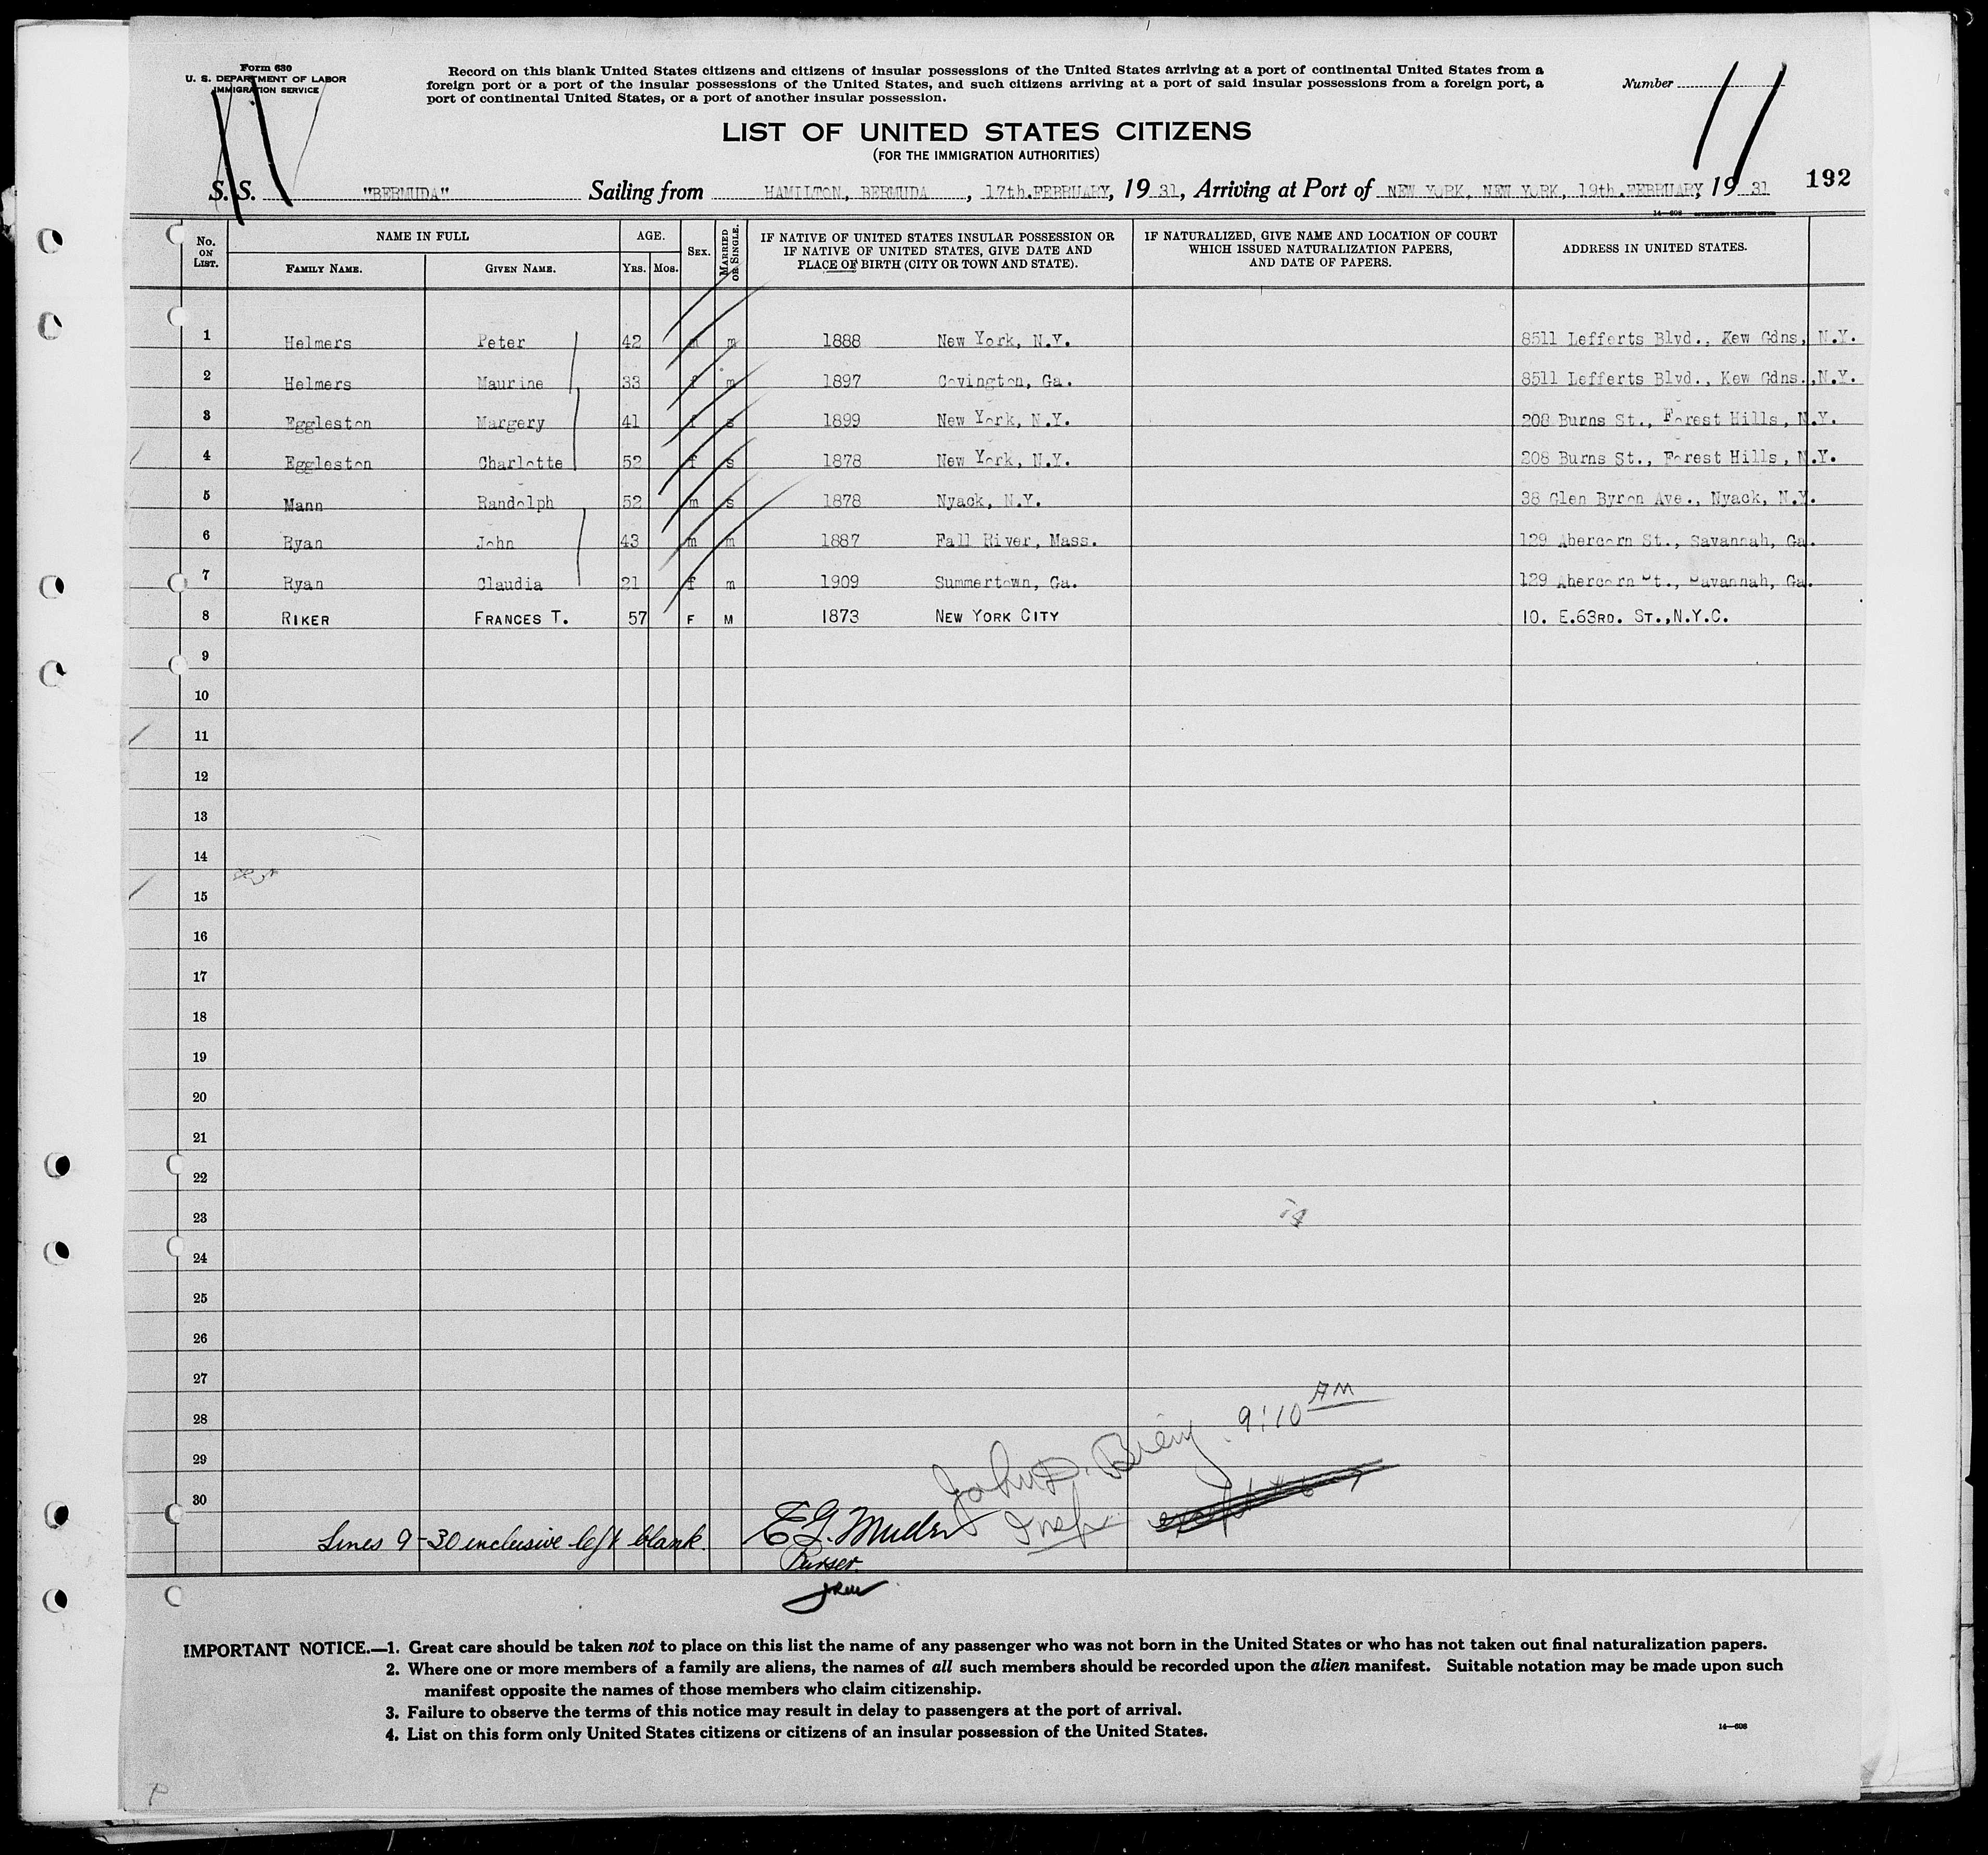 Form 630
U. S. DEPARTMENT OF LABOR
IMMIGRATION SERVICE
Record on this blank United States citizens and citizens of insular possessions of the United States arriving at a port of continental United States from a
foreign port or a port of the insular possessions of the United States, and such citizens arriving at a port of said insular possessions from a foreign port, a
port of continental United States, or a port of another insular possession.
Number
11
LIST OF UNITED STATES CITIZENS
(FOR THE IMMIGRATION AUTHORITIES)
S. S. "BERMUDA" Sailing from HAMILTON, BERMUDA, 17th.FEBRUARY, 19 31, Arriving at Port of NEW YORK, NEW YORK, 19th.FEBRUARY, 19 31
192
14—608 GOVERNMENT PRINTING OFFICE
No. ON LIST. NAME IN FULL AGE. SEX. MARRIED OR SINGLE. IF NATIVE OF UNITED STATES INSULAR POSSESSION OR IF NATIVE OF UNITED STATES, GIVE DATE AND PLACE OF BIRTH (CITY OR TOWN AND STATE). IF NATURALIZED, GIVE NAME AND LOCATION OF COURT WHICH ISSUED NATURALIZATION PAPERS, AND DATE OF PAPERS. ADDRESS IN UNITED STATES.
FAMILY NAME. GIVEN NAME. YRS. MOS.
1 Helmers Peter 42 m m 1888 New York, N.Y. 8511 Lefferts Blvd., Kew Gdns, N.Y.
2 Helmers Maurine 33 f m 1897 Covington, Ga. 8511 Lefferts Blvd., Kew Gdns.,N.Y.
3 Eggleston Margery 41 f s 1899 New York, N.Y. 208 Burns St., Forest Hills, N.Y.
4 Eggleston Charlotte 52 f s 1878 New York, N.Y. 208 Burns St., Forest Hills, N.Y.
5 Mann Randolph 52 m s 1878 Nyack, N.Y. 38 Glen Byron Ave., Nyack, N.Y.
6 Ryan John 43 m m 1887 Fall River, Mass. 129 Abercorn St., Savannah, Ga.
7 Ryan Claudia 21 f m 1909 Summertown, Ga. 129 Abercorn St., Savannah, Ga.
8 RIKER FRANCES T. 57 F M 1873 NEW YORK CITY 10. E.63RD. ST.,N.Y.C.
9
10
11
12
13
14
15
16
17
18
19
20
21
22
23
24
25
26
27
28
29
30
9:10 AM
John
Insp.
Lines 9-30 inclusive left blank. E G. Muller
Purser.
IMPORTANT NOTICE.—1. Great care should be taken not to place on this list the name of any passenger who was not born in the United States or who has not taken out final naturalization papers.
2. Where one or more members of a family are aliens, the names of all such members should be recorded upon the alien manifest. Suitable notation may be made upon such
manifest opposite the names of those members who claim citizenship.
3. Failure to observe the terms of this notice may result in delay to passengers at the port of arrival.
4. List on this form only United States citizens or citizens of an insular possession of the United States.
14—608